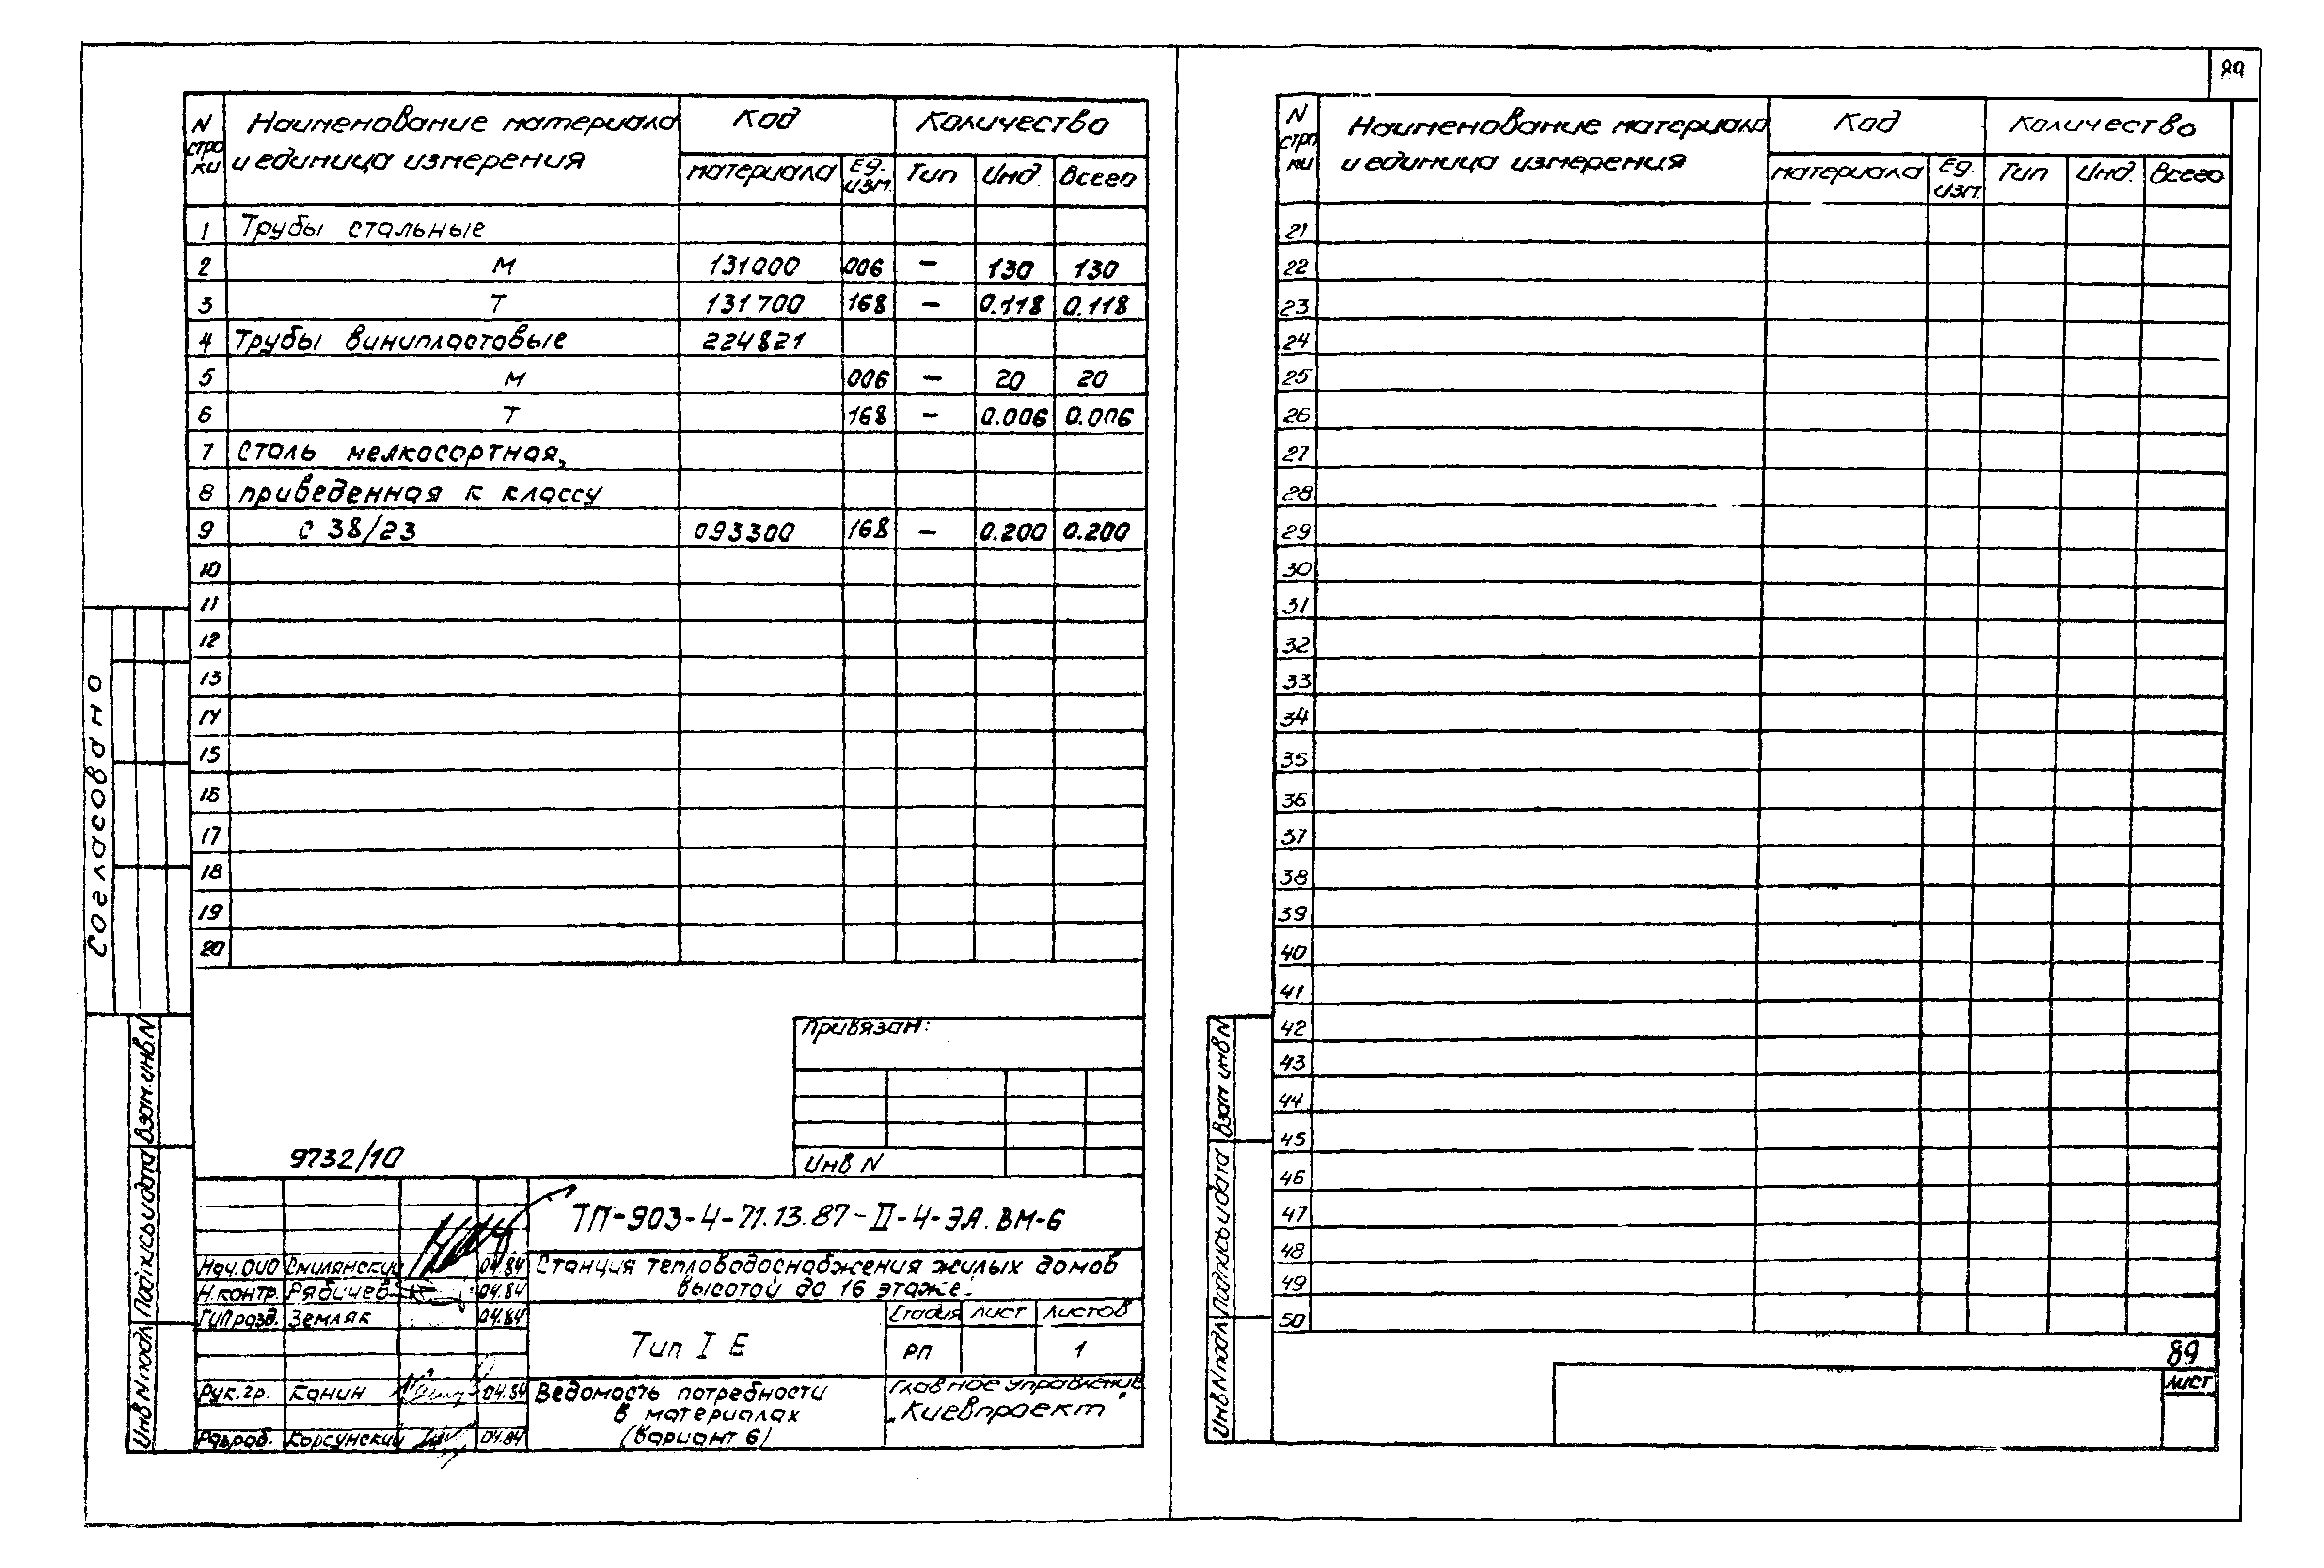 89
N стро ки Наименование материала и единица измерения Код Количество
материала Ед. изм. Тип Инд. Всего
1 Трубы стальные
2 м 131000 006 – 130 130
3 т 131700 168 – 0.118 0.118
4 Трубы винипластовые 224821
5 м 006 – 20 20
6 т 168 – 0.006 0.006
7 Сталь мелкосортная,
8 приведенная к классу
9 С 38/23 093300 168 – 0.200 0.200
10
11
12
13
14
15
16
17
18
19
20
Согласовано
Взам. инв N
Подпись и дата
Инв N подл
Привязан:
Инв N
9732/10
ТП-903-4-71.13.87-II-4-ЭА.ВМ-6
Нач. ОИО Смилянский 04.84
Н.контр. Рябичев 04.84
ГИП разд. Земляк 04.84
Рук. гр. Канин 04.84
Разраб. Корсунский 04.84
Станция тепловодоснабжения жилых домов
высотой до 16 этаже.
Тип I Е
Стадия лист листов
РП 1
Ведомость потребности
в материалах
(вариант 6)
Главное управление
„Киевпроект"
N стро ки Наименование материала и единица измерения Код Количество
материала Ед. изм. Тип Инд. Всего
21
22
23
24
25
26
27
28
29
30
31
32
33
34
35
36
37
38
39
40
41
42
43
44
45
46
47
48
49
50
Взам инв N
Подпись и дата
Инв N подл
89
лист